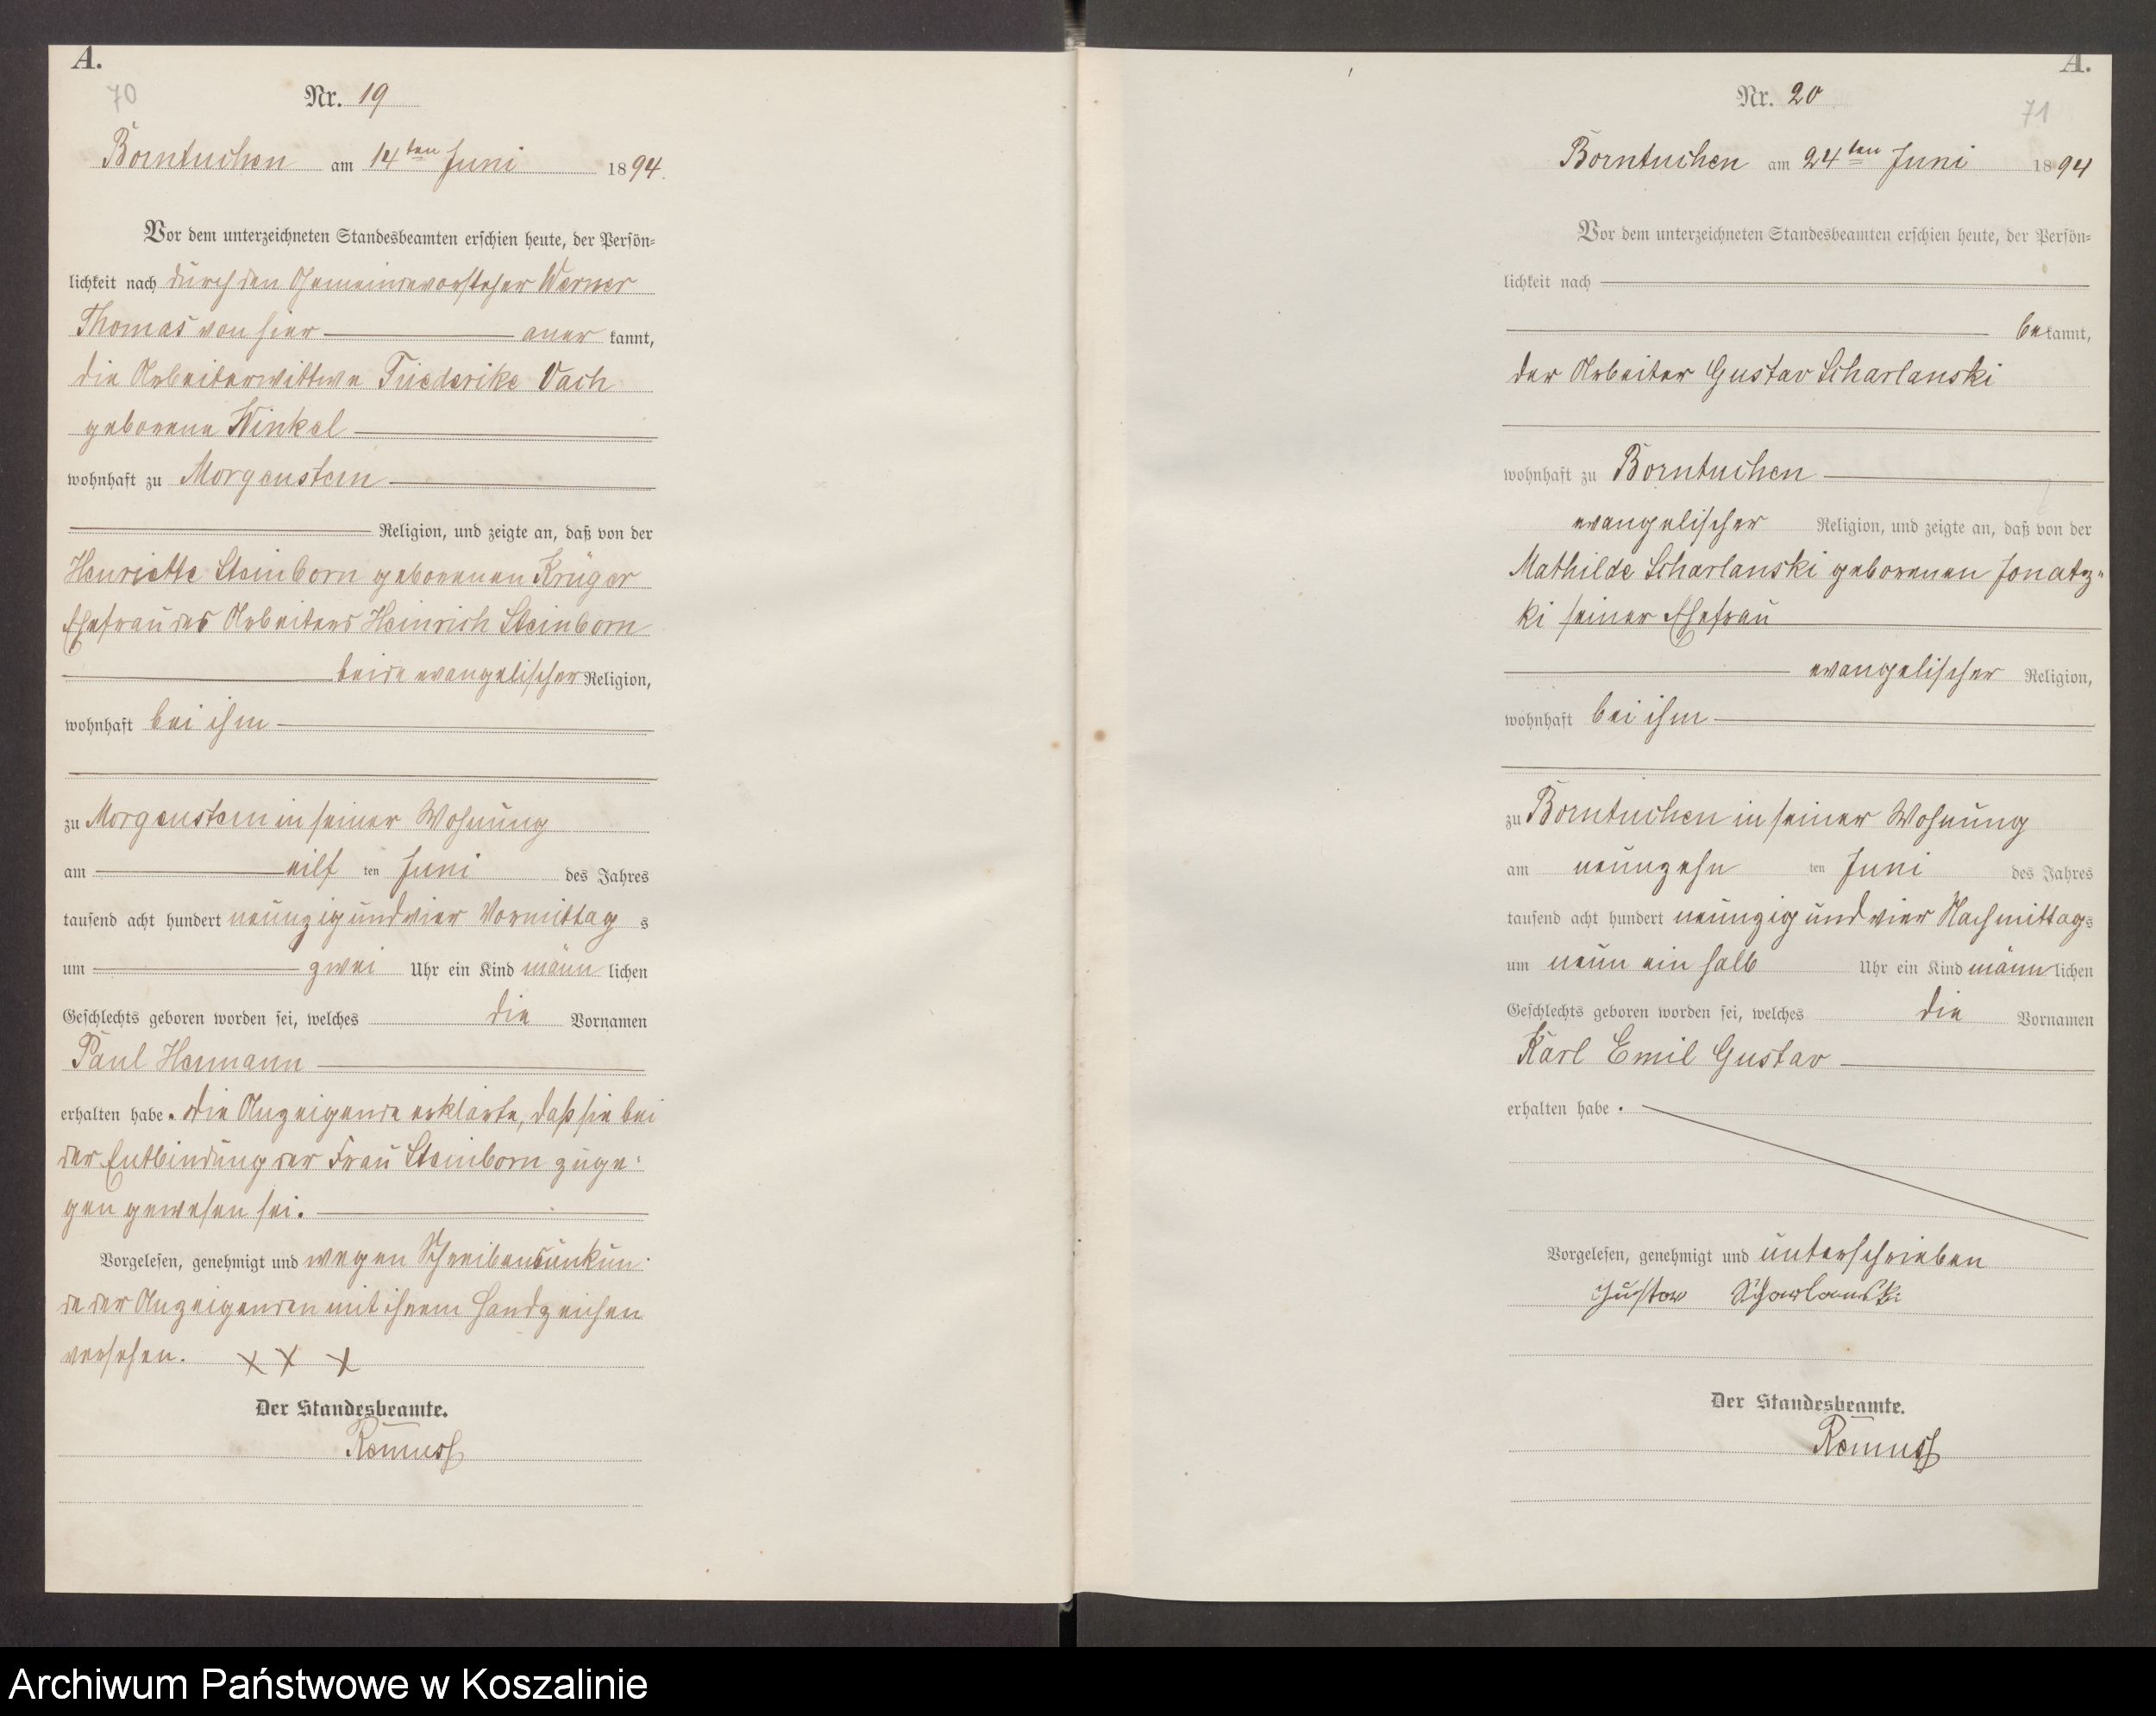 A.
70
Nr. 19
Borntuchen am 14ten Juni 1894.
Vor dem unterzeichneten Standesbeamten erschien heute, der Persön-
lichkeit nach durch den Gemeindevorsteher Werner
Thomas von hier aner kannt,
die Arbeiterwittwe Friederike Vach
geborene Winkel
wohnhaft zu Morgenstern
Religion, und zeigte an, daß von der
Henriette Steinborn geborenen Krüger
Ehefrau des Arbeiters Heinrich Steinborn
beide evangelischer Religion,
wohnhaft bei ihm
zu Morgenstern in seiner Wohnung
am eilf ten Juni des Jahres
tausend acht hundert neunzig und vier Vormittag s
um zwei Uhr ein Kind männ lichen
Geschlechts geboren worden sei, welches die Vornamen
Paul Hermann
erhalten habe. Die Anzeigende erklärte, daß sie bei
der Entbindung der Frau Steinborn zuge-
gen gewesen sei.
Vorgelesen, genehmigt und wegen Schreibensunkun-
de der Anzeigenden mit ihrem Handzeichen
versehen. X X X
Der Standesbeamte.
Remuss
A.
Nr. 20
71
Borntuchen am 24ten Juni 1894
Vor dem unterzeichneten Standesbeamten erschien heute, der Persön-
lichkeit nach
bekannt,
der Arbeiter Gustav Scharlanski
wohnhaft zu Borntuchen
evangelischer Religion, und zeigte an, daß von der
Mathilde Scharlanski geborenen Jonatz-
ki seiner Ehefrau
evangelischer Religion,
wohnhaft bei ihm
zu Borntuchen in seiner Wohnung
am neunzehn ten Juni des Jahres
tausend acht hundert neunzig und vier Nachmittags
um neun ein halb Uhr ein Kind männlichen
Geschlechts geboren worden sei, welches die Vornamen
Karl Emil Gustav
erhalten habe.
Vorgelesen, genehmigt und unterschrieben
Gustav Scharlanski
Der Standesbeamte.
Remuss
Archiwum Państwowe w Koszalinie